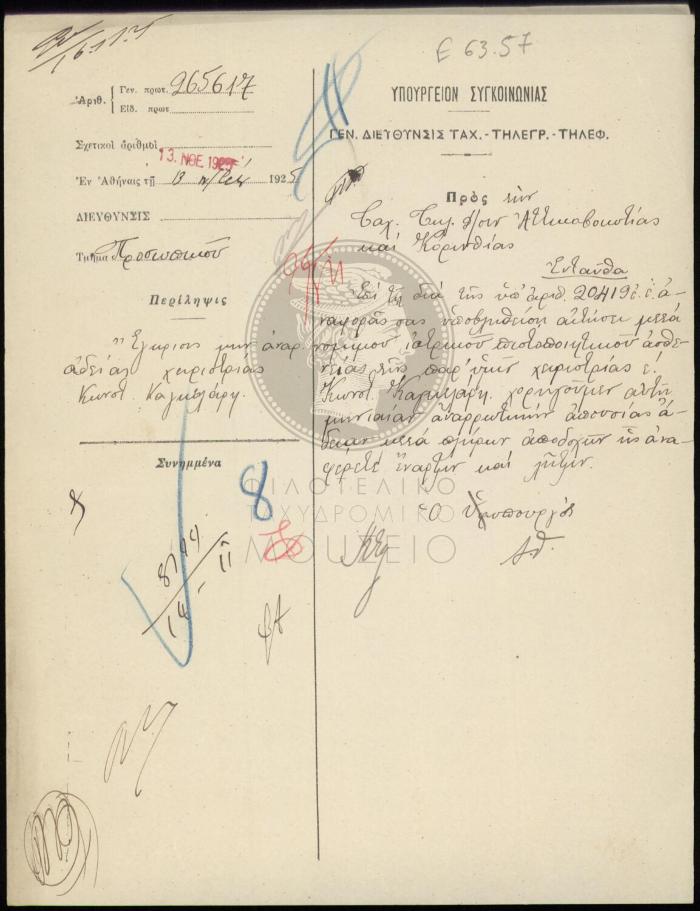 Ε 63.57
Ἀριθ.
Γεν. πρωτ. 265617
Εἰδ. πρωτ
Σχετικοὶ ἀριθμοὶ
13. ΝΟΕ. 1925
Ἐν Ἀθήναις τῇ 13 1925
ΔΙΕΥΘΥΝΣΙΣ
Τμῆμα Προσωπικοῦ
Περίληψις
"Ἔγκρισις μην. ἀναρ.
ἀδείας χειριστρίας
Κωνστ.
Συνημμένα
8
8744
14 - 11
ΥΠΟΥΡΓΕΙΟΝ ΣΥΓΚΟΙΝΩΝΙΑΣ
ΓΕΝ. ΔΙΕΥΘΥΝΣΙΣ ΤΑΧ. - ΤΗΛΕΓΡ. - ΤΗΛΕΦ.
Πρὸς τὴν
Ταχ. Τηλ. Δ/σιν Ἀττικοβοιωτίας
καὶ Κορινθίας
Ἐνταῦθα
Ἐπὶ τῇ διὰ τῆς ὑπ' ἀριθ. 20419 ἐ.ἔ. ἀ-
ναφορᾶς σας ὑποβληθείσῃ αἰτήσει μετὰ
νομίμου ἰατρικοῦ πιστοποιητικοῦ ἀσθε-
νείας τῆς παρ' ὑμῖν χειριστρίας
Κωνστ. χορηγοῦμεν αὐτῇ
μηνιαίαν ἀναρρωτικὴν ἀπουσίας ἄ-
δειαν μετὰ πλήρων ἀποδοχῶν ἧς ἀνα-
φέρετε ἔναρξιν καὶ λῆξιν.
Ὁ Ὑφυπουργὸς
ΦΙΛΟΤΕΛΙΚΟ
ΤΑΧΥΔΡΟΜΙΚΟ
ΜΟΥΣΕΙΟ